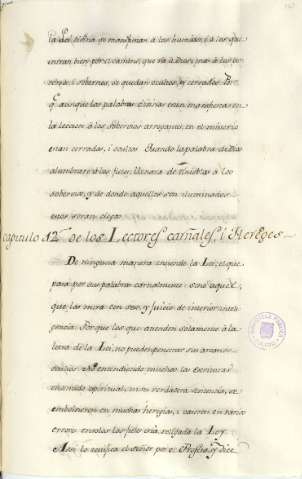 la Lei divina se manifiestan a los humildes, i a los que
entran bien por el camino, que va a Dios, mas a los so
verbios, i soberuios, se quedan ocultos, y cerrados. Por
q. aunque las palabras divinas estan manifiestas en
la leccion a los soberbios arrogantes, en el misterio
estan cerradas, i ocultas. Quando la palabra de Dios
alumbrare a los fieles, llenara de tinieblas a los
soberbios, y de donde aquellos son iluminados
estos seran ciegos.
Capitulo 12. de los Lectores carnales, i Hereges
De ninguna manera entiende la Lei, el que
pasa por sus palabras carnalmente, sino aquel,
que las mira con seso, y juicio de interior inteli
gencia. Porque los que atienden solamente a la
letra de la Lei, no pueden penetrar sus arcanos
entendiendo muchos las escrituras
sentido espiritual, ni en verdadera sentencia, se
embolvieron en muchas heregias, i caieron en varios
errores. en solos los fieles esta religada la Ley
Assi lo testifica el señor por el Profeta, y dice